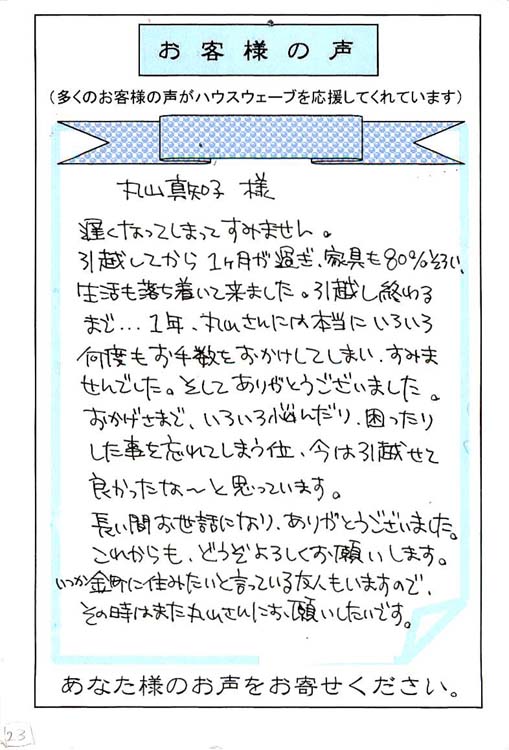 お客様の声
（多くのお客様の声がハウスウェーブを応援してくれています）
丸山真知子 様
遅くなってしまってすみません。
引越してから1ヶ月が過ぎ、家具も80%そろい、
生活も落ち着いて来ました。引越し終わる
まで…1年、丸山さんには本当にいろいろ
何度もお手数をおかけしてしまい、すみま
せんでした。そしてありがとうございました。
おかげさまで、いろいろ悩んだり、困ったり
した事を忘れてしまう位、今は引越せて
良かったな〜と思っています。
長い間お世話になり、ありがとうございました。
これからも、どうぞよろしくお願いします。
いつか金町に住みたいと言っている友人もいますので、
その時はまた丸山さんにお願いしたいです。
あなた様のお声をお寄せください。
23